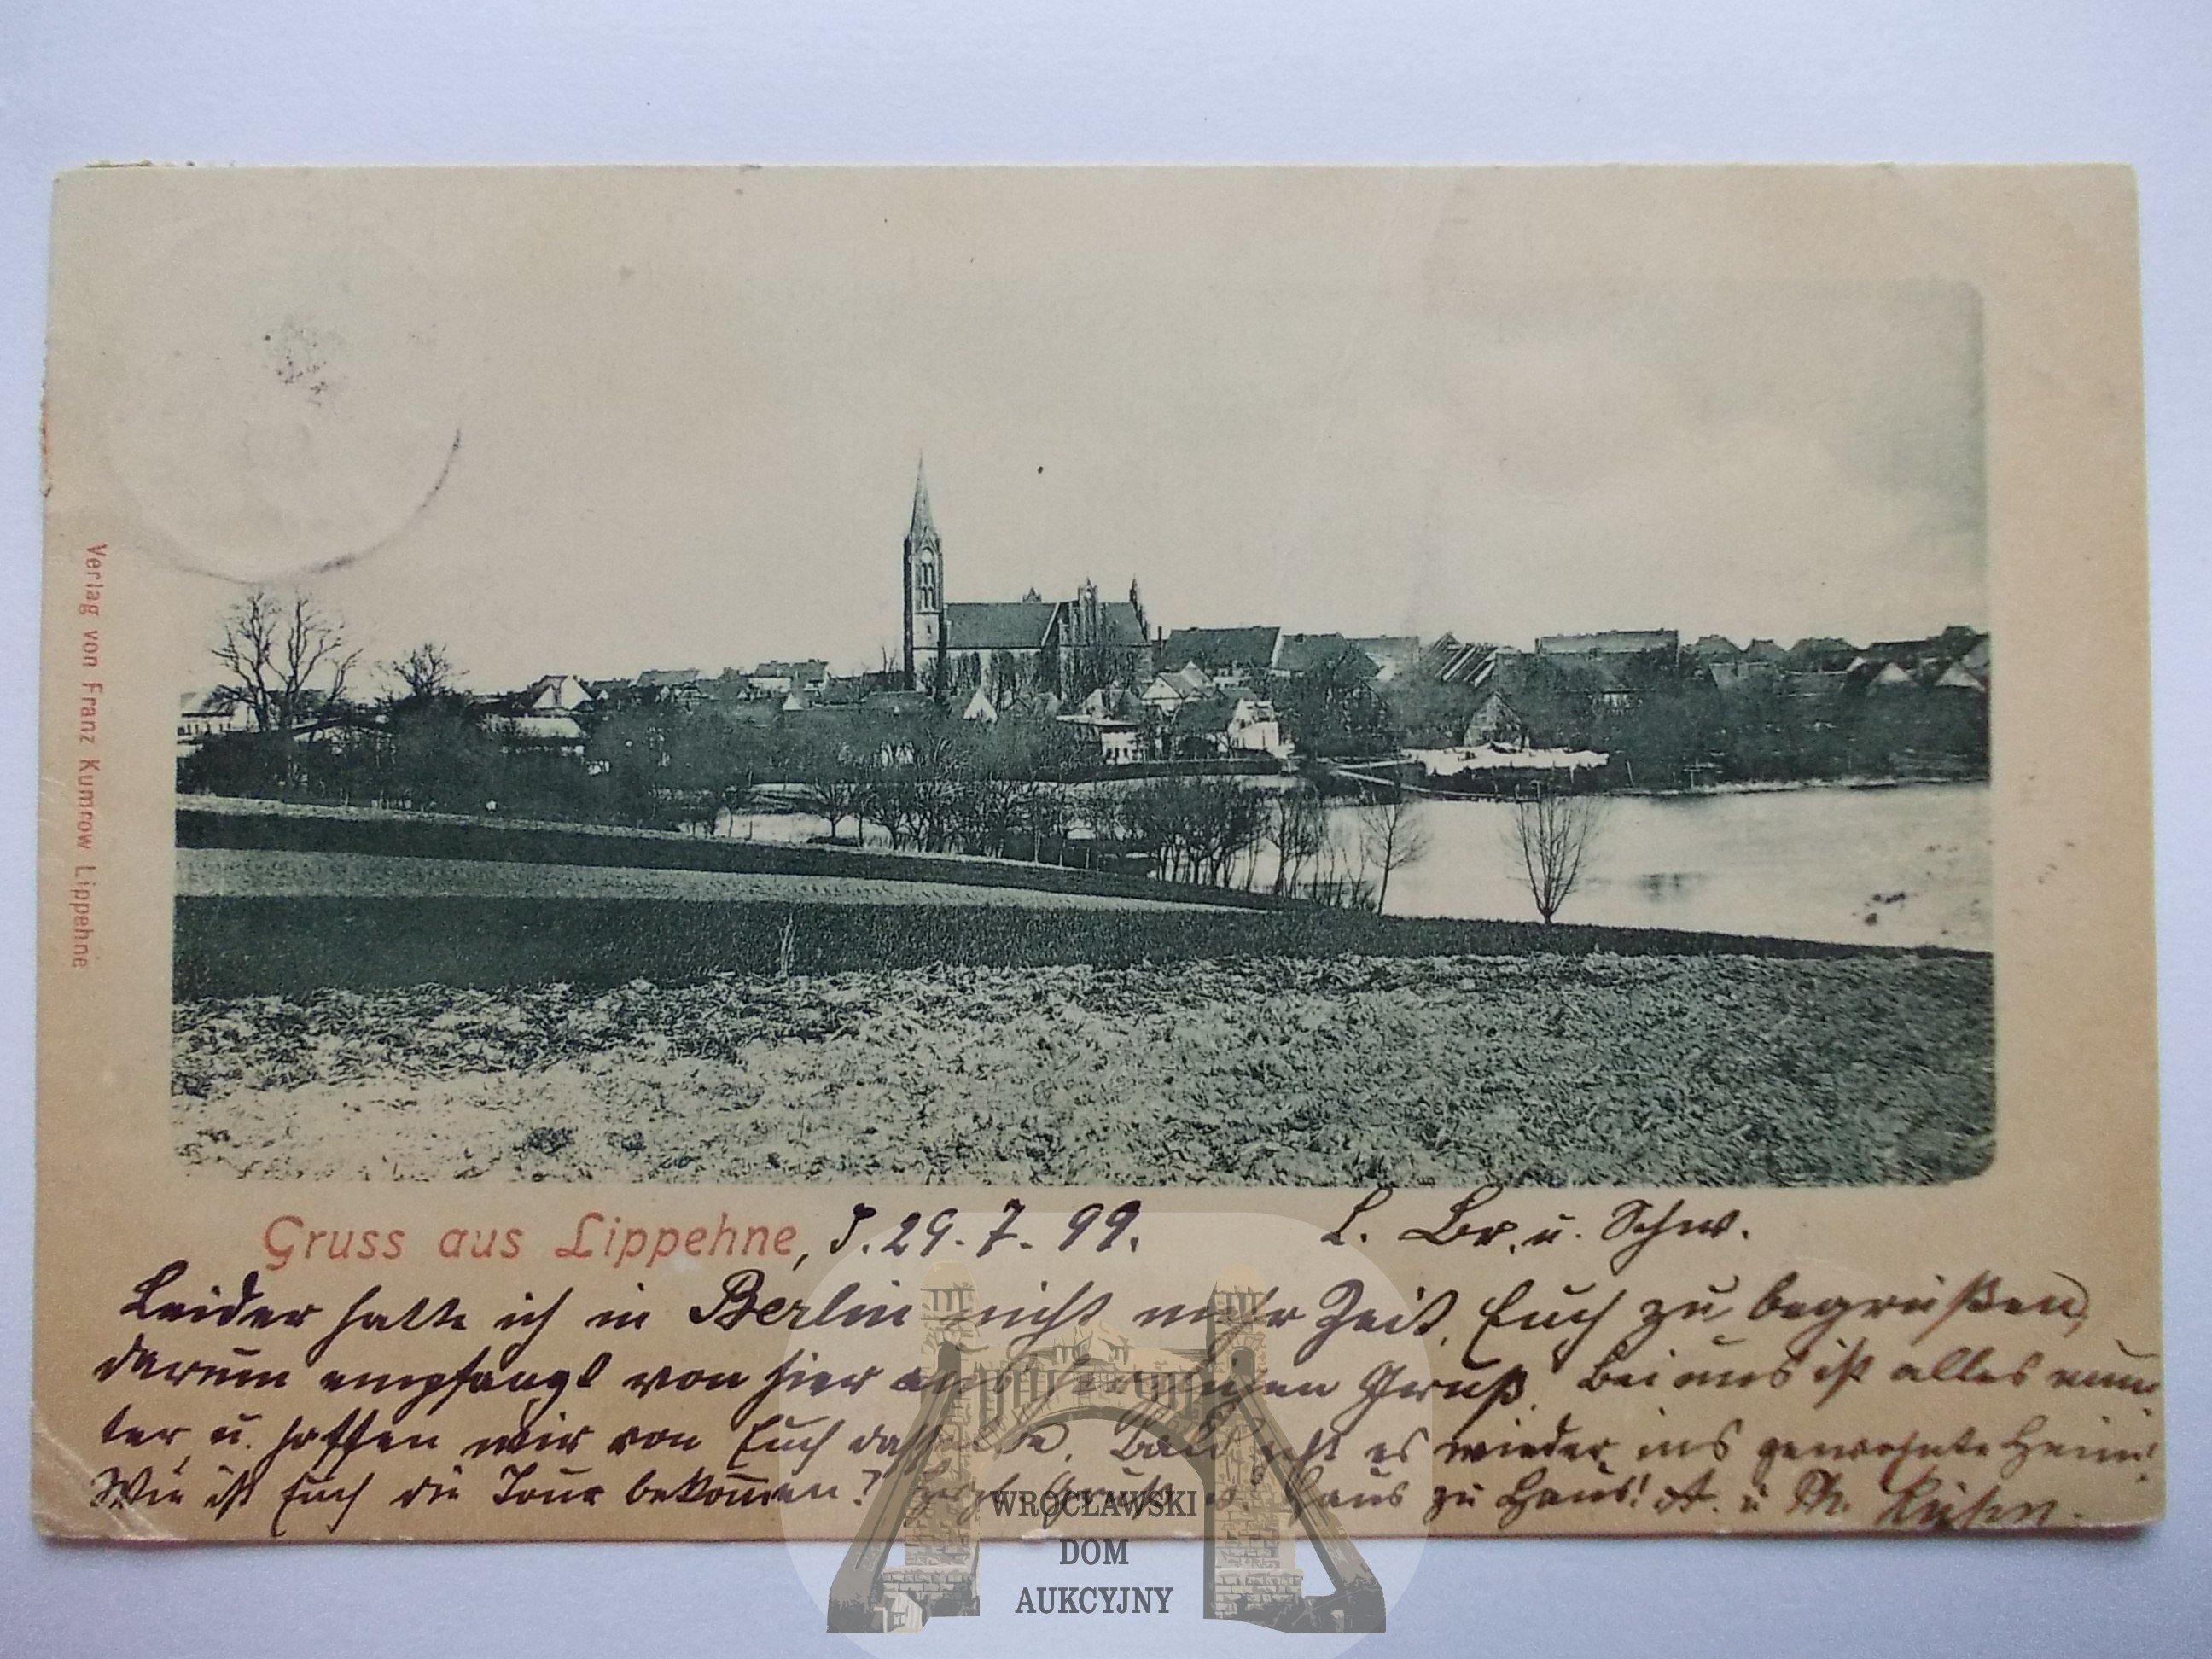 Verlag von Franz Kumrow Lippehne
Gruss aus Lippehne, d. 29. 7. 99.
L. Br. u. Schw.
Leider hatte ich in Berlin nicht mehr Zeit, Euch zu begrüßen,
darum empfangt von hier aus Gruß. Bei uns ist alles mun-
ter, u. hoffen wir von Euch dasselbe. Bald geht es wieder ins gewohnte Heim!
Wie ist Euch die Tour bekom̄en? Haus zu Haus! A. u Th. Kühn.
WROCŁAWSKI
DOM
AUKCYJNY